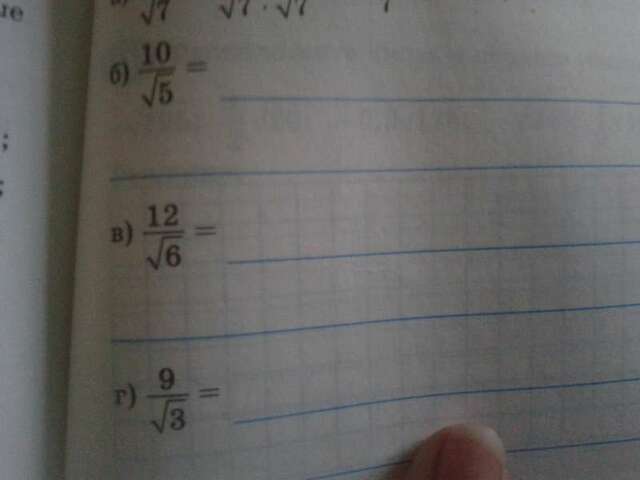 √7 √7 · √7 7
б) 10/√5 =
в) 12/√6 =
г) 9/√3 =